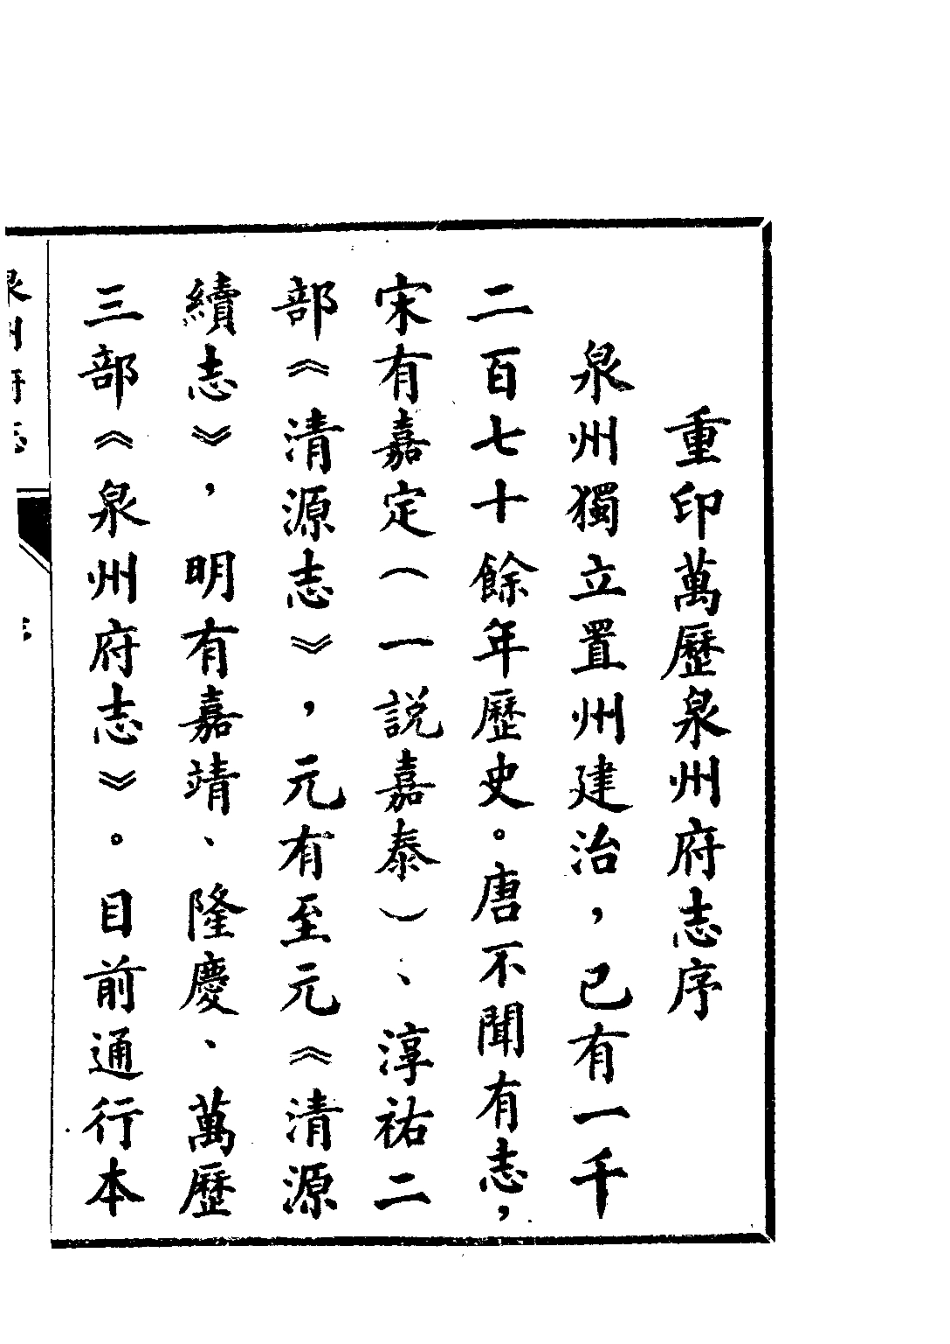 重印萬歷泉州府志序
泉州獨立置州建治，已有一千
二百七十餘年歷史。唐不聞有志，
宋有嘉定（一説嘉泰）、淳祐二
部《清源志》，元有至元《清源
續志》，明有嘉靖、隆慶、萬歷
三部《泉州府志》。目前通行本
泉州府志